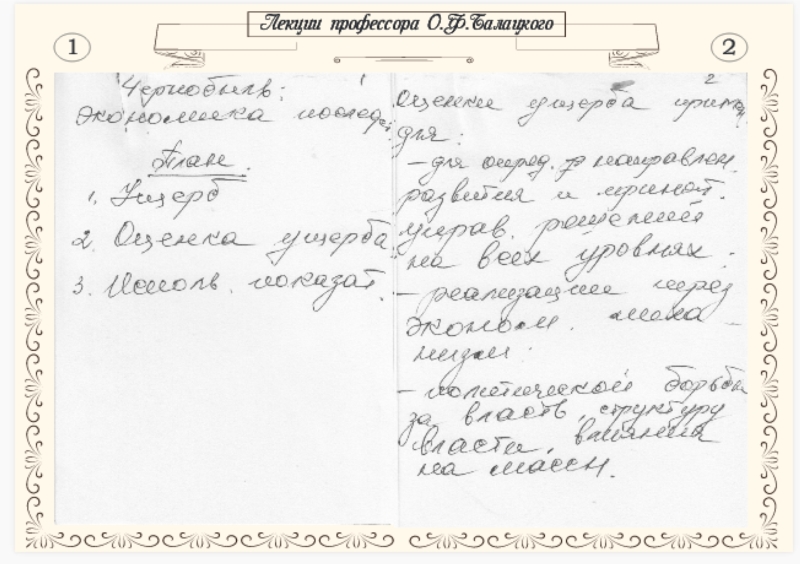 Лекции профессора О.Ф.Балацкого
1
2
1
Чернобыль:
Экономика послед.
План.
1. Ущерб
2. Оценка ущерба
3. Исполь. показат.
2
Оценки ущерба
для:
- для опред. направлен.
развития и принят.
управ. решений
на всех уровнях.
- реализации через
эконом. меха-
низм.
- политической борьбы
за власть, структуру
власти, влияния
на массы.